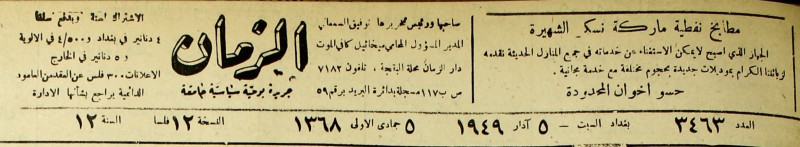 مطابخ نفطية ماركة نسكي الشهيرة
الجهاز الذي اصبح لايمكن الاستغناء عن خدماته في جميع المنازل الحديثة نقدمه
لزبائننا الكرام بموديلات جديدة بحجوم مختلفة مع خدمة مجانية.
حسو اخوان المحدودة
صاحبها ورئيس تحريرها توفيق السمعاني
المدير المسؤول المحامي ميخائيل كافي الموت
دار الزمان محلة البتجة، تلفون ٧١٨٣
ص ب ١١٧ مسجلة بدائرة البريد برقم ٥٩
الزمان
جريدة يومية سياسية جامعة
الاشتراك لسنة ويدفع سلفا
٤ دنانير في بغداد و ٤/٥٠٠ في الالوية
و ٥ دنانير في الخارج
الاعلانات ٣٠٠ فلس عن العقد من العامود
الدائمية يراجع بشأنها الادارة
العدد ٣٤٦٣ بغداد السبت - ٥ آذار ١٩٤٩ ٥ جمادى الاولى ١٣٦٨ النسخة ١٢ فلسا السنة ١٢